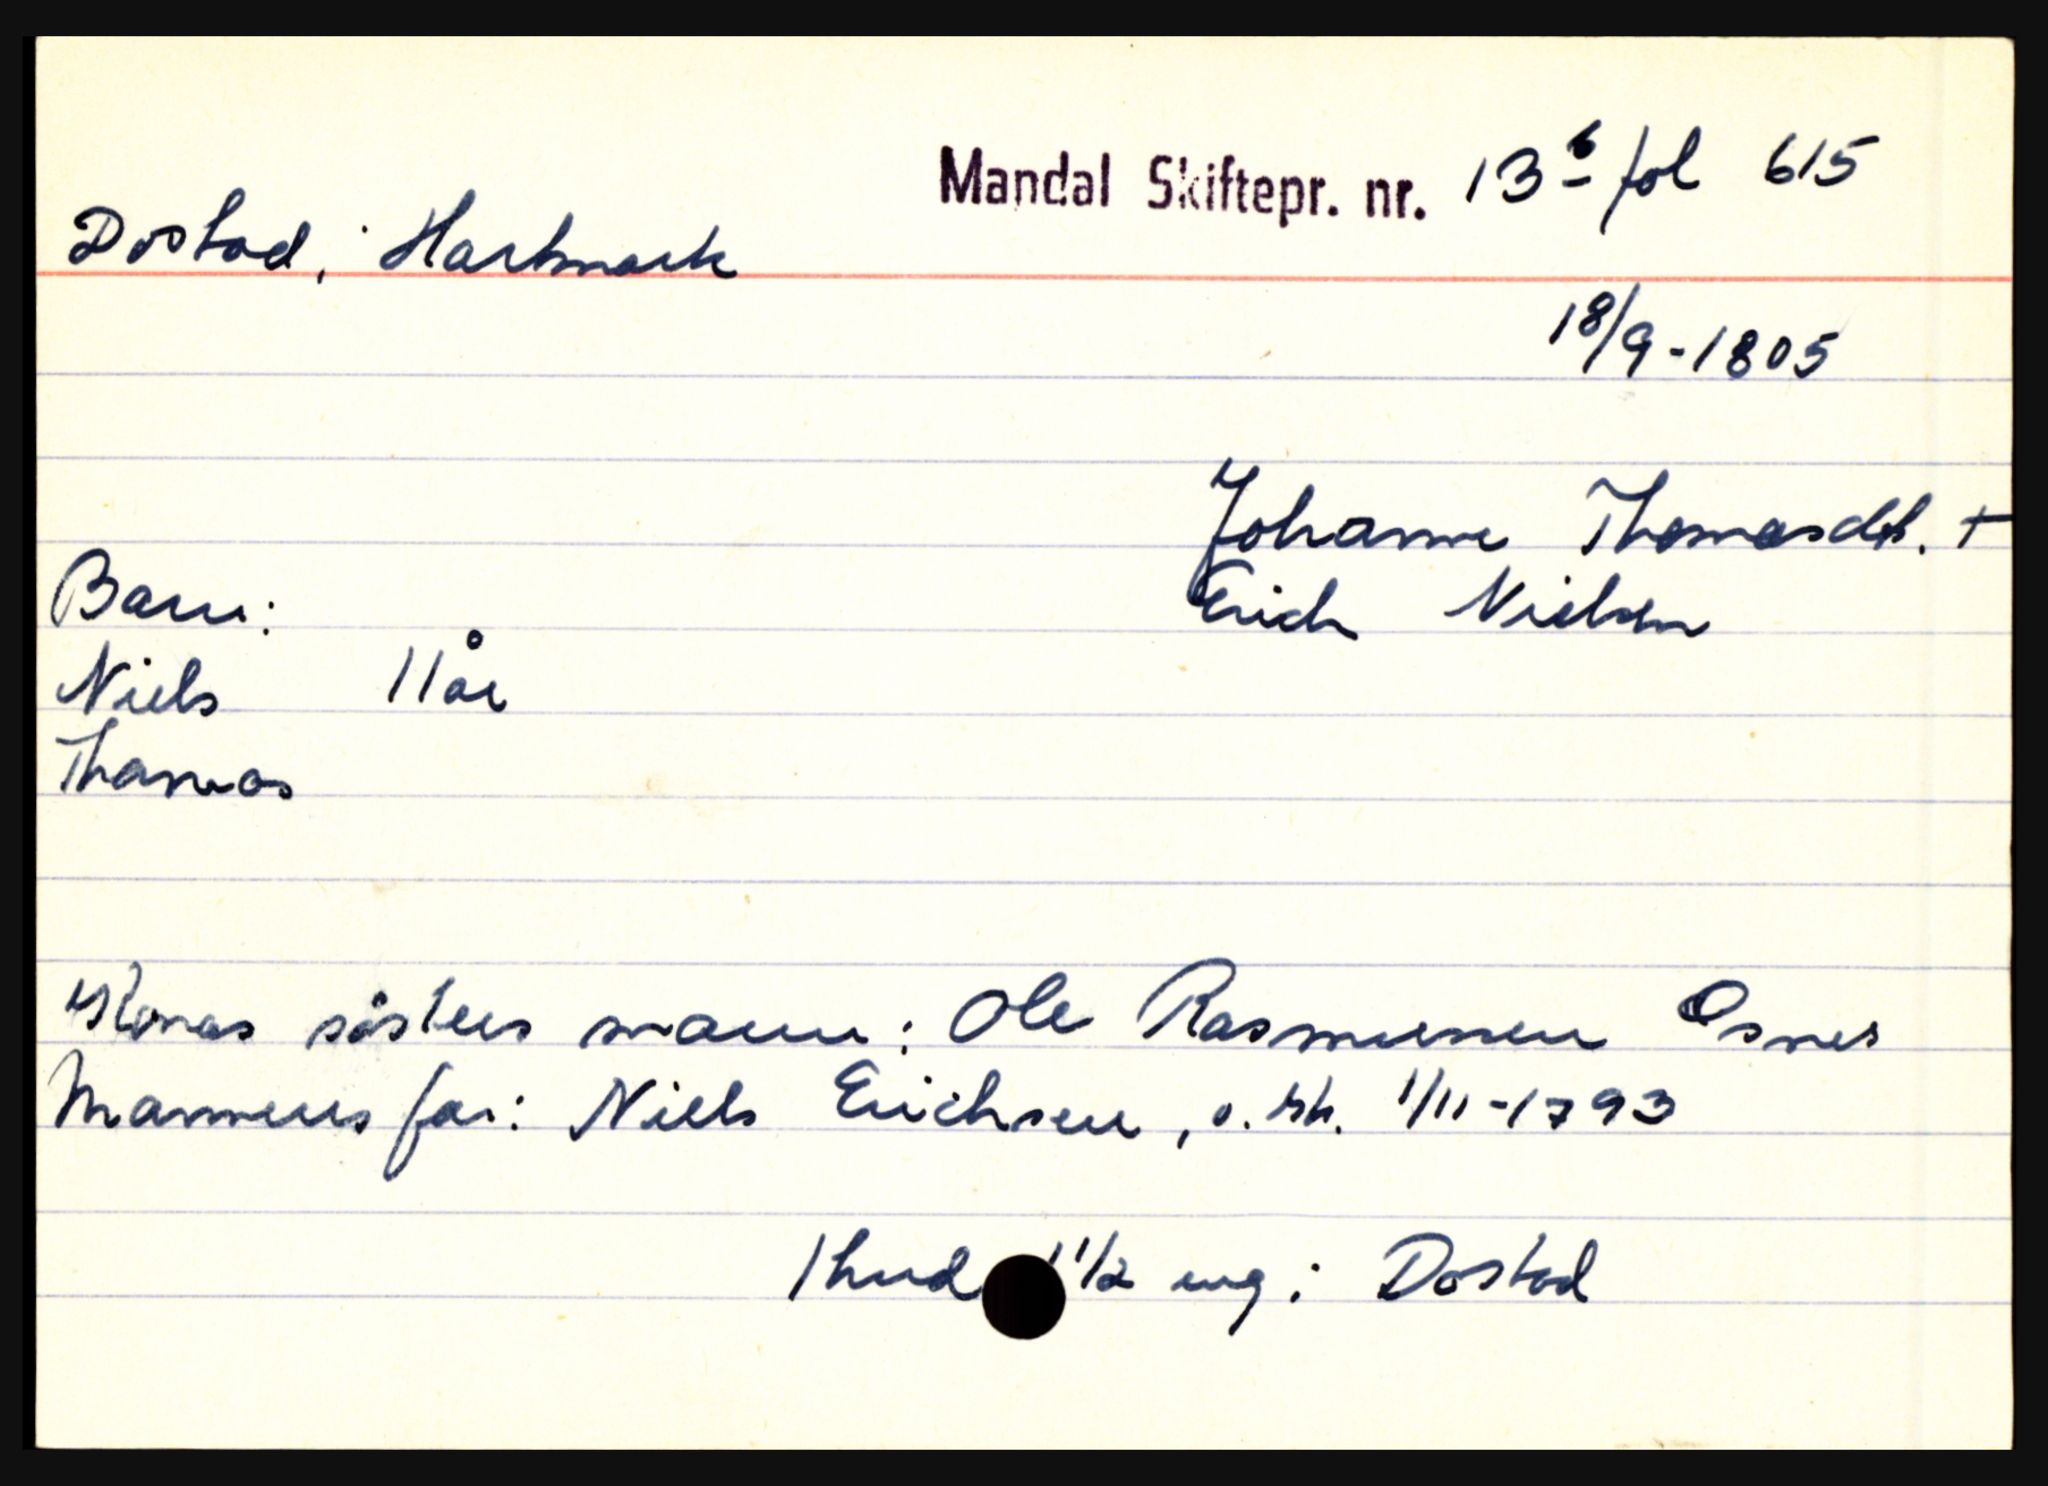 Mandal Skiftepr. nr. 13 b fol 615
Dostad, Hartmark
18/9-1805
Johanne Thomasdt. +
Barn: Erich Nielsen
Niels 11 år
Thomas
Konas søsters mann: Ole Rasmussen Osnes
Mannens far: Niels Erichsen, o. sk. 1/11-1793
1 hud 1 1/2 eng i Dostad